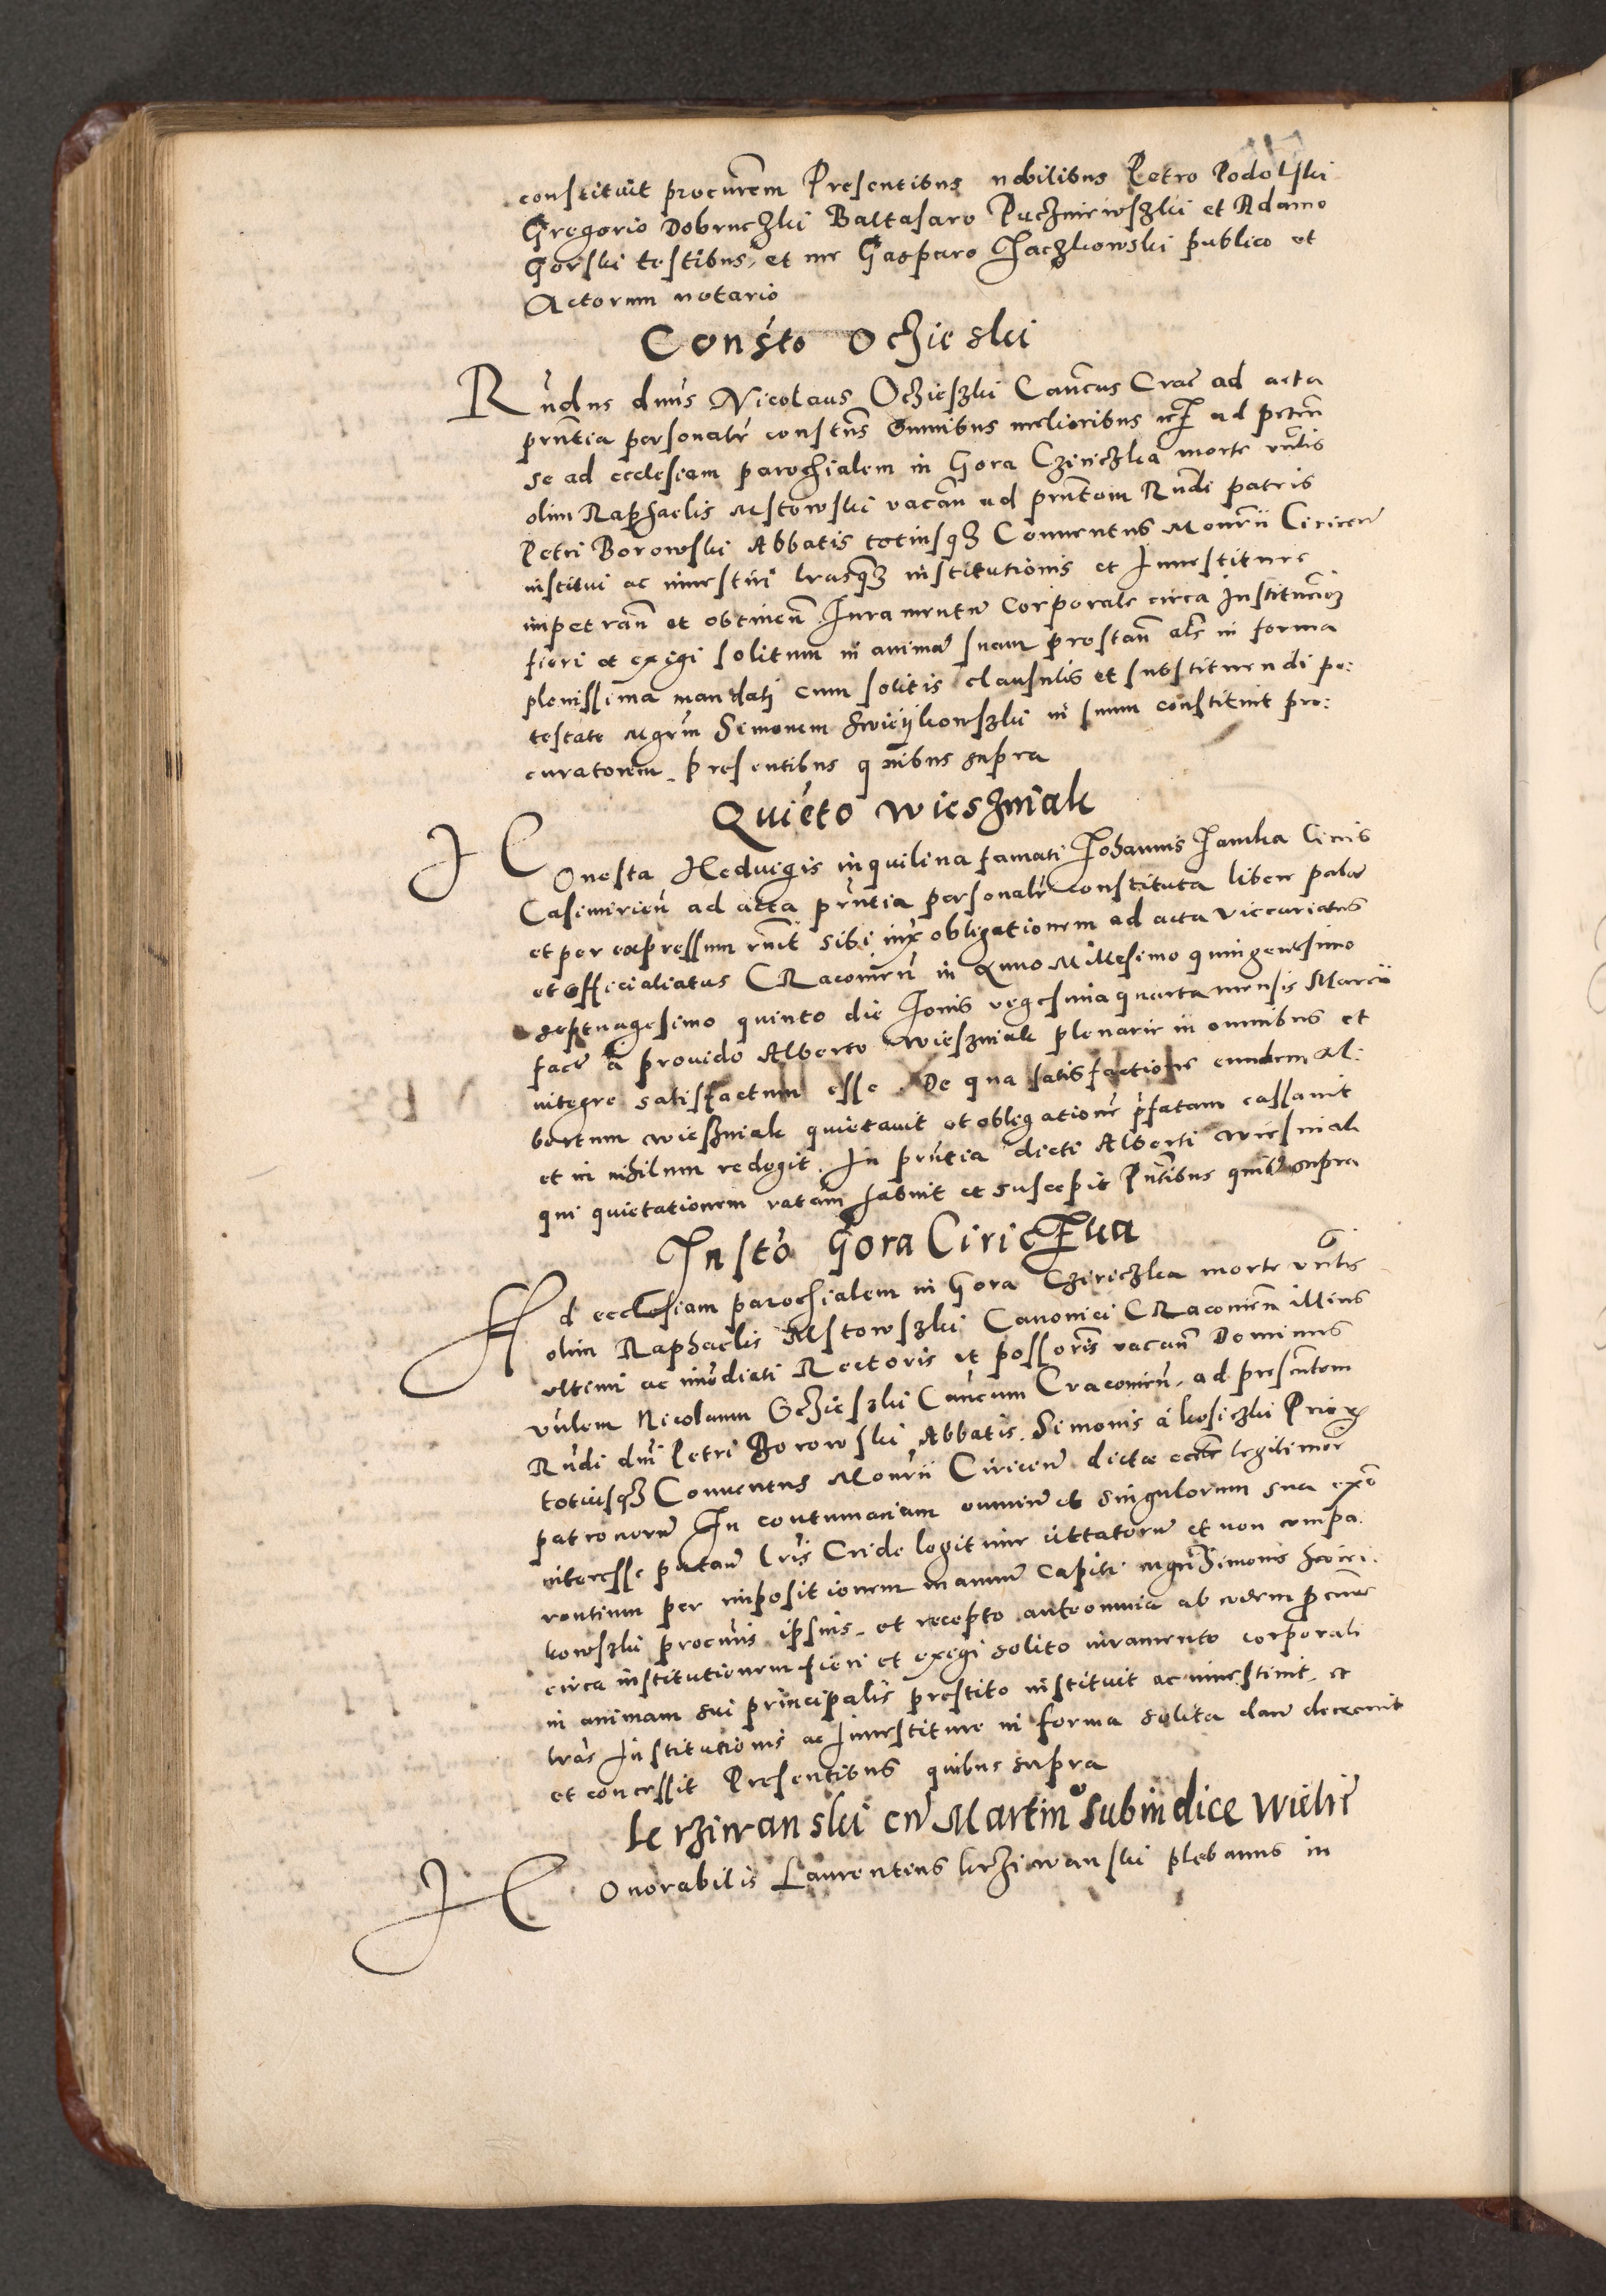 constituit procurem Presentibus nobilibus Petro Podolski
Gregorio Dobruchzki Baltasaro Puchniewszki et Adamo
Gorski testibus, et me Gasparo Jaczkowski publico et
Actorum notario
Consto Ochieski
Rndus dnus Nicolaus Ochieszki Cancus Crac ad acta
prntia personalr constens Omnibus melioribus ad peten
se ad ecclesiam parochialem in Gora Czirichzka morte vntis
olim Raphaelis Mstowski vacan ad prntem Rndi patris
Petri Borowski Abbatis totiusqz Conuentus Monrii Ciricen
institui ac inuestiri lrasqz institutionis et Inuestiture
impetran et obtinen Juramentu Corporale circa Institucioz
fieri et exigi solitum in anima suam prestan als in forma
plenissima mandati cum solitis clausulis et substituendi po:
testate Mgrm Simonem Swieijkowszki in suum constituit pro:
curatorem. presentibus quibus supra
Quieto Wieszniak
Honesta Heduigis inquilina famati Johannis Jamka Ciuis
Casimirien ad acta prntia personalr constituta libere palae
et per expressum rnit sibi iux obligationem ad acta Viccariatus
et officialiatus CRacouien in Anno Millesimo quingentesimo
septuagesimo quinto die Jouis vegesima quarta mensis Marcii
facta a prouido Alberto Wieszniak plenarie in omnibus et
integre satisfactum esse. De qua satisfactione eundem Al:
bertum Wieszniak quietauit et obligatione prfatam cassauit
et in nihilum redegit. In prntia dicti Alberti Wiesniak
qui quietationem ratam habuit et suscepit Pntibus quib supra
Insto Gora Ciricensa
Ad ecclesiam parochialem in Gora Czirichzka morte vntis
olim Raphaelis Mstowszki Canonici CRacouien illius
vltimi ac imediati Rectoris et possoris vacan Dominus
vnlem Nicolaum Ochieszki Cancum Cracouien. ad presentem
Rndi dni Petri Borowski Abbatis. Simonis a kosiczki Prioris
totiusqz Conuentus Monrii Ciricen dictae eccle legitimor
patronoru In contumaciam omniu et singulorum sua expo
interesse putan lris Cride legitime cittatoru et non compa:
rentium per impositionem manuu Capiti Mgri Simonis Swiei:
kowszki procuris ipsius. et recepto anteomnia ab eodem procure
circa institutionem fieri et exigi solito iuramento corporali
in animam sui principalis prestito instituit ac inuestiuit. et
lras Institutionis ac Inuestiture in forma solita dare decreuit
et concessit Presentibus quibus supra
Lerziwanski cu Martino Subiudice Wielie
Honorabilis Laurentius kerziwanski plebanus in